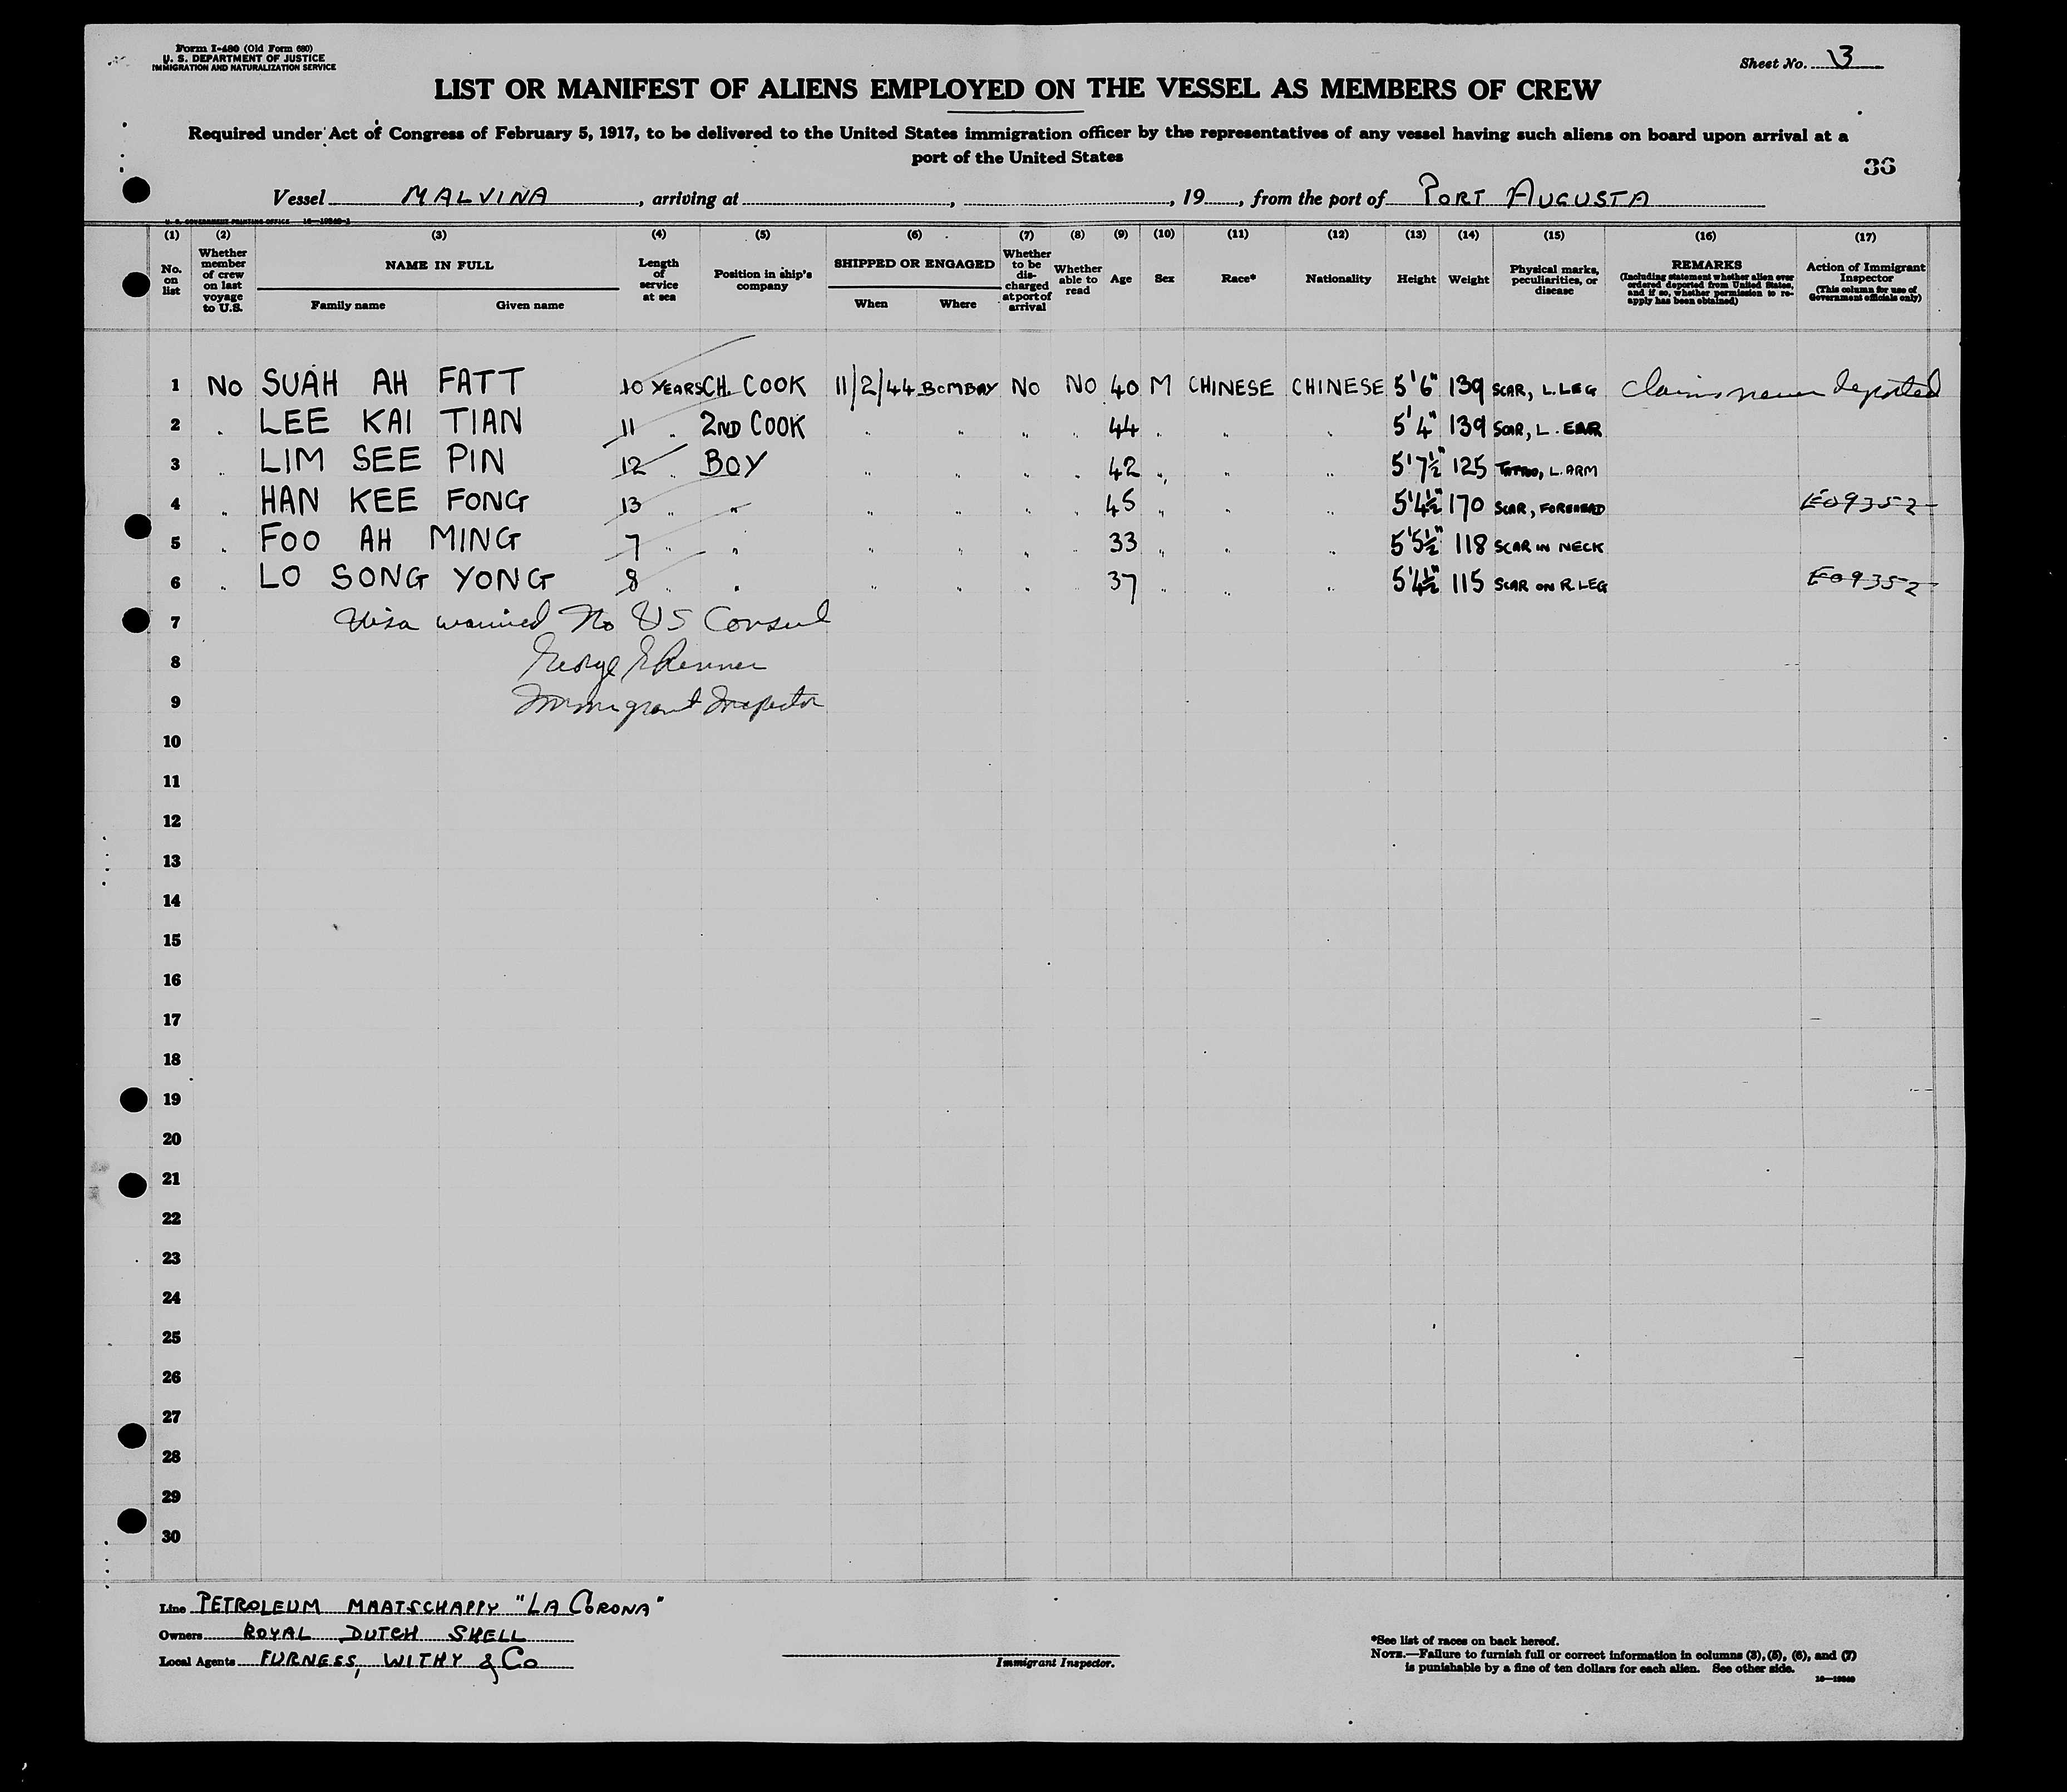 Form I-480 (Old Form 680)
U. S. DEPARTMENT OF JUSTICE
IMMIGRATION AND NATURALIZATION SERVICE
Sheet No. 3
LIST OR MANIFEST OF ALIENS EMPLOYED ON THE VESSEL AS MEMBERS OF CREW
Required under Act of Congress of February 5, 1917, to be delivered to the United States immigration officer by the representatives of any vessel having such aliens on board upon arrival at a
port of the United States
36
Vessel MALVINA, arriving at , , 19 , from the port of PORT AUGUSTA
U. S. GOVERNMENT PRINTING OFFICE
(1) (2) (3) (4) (5) (6) (7) (8) (9) (10) (11) (12) (13) (14) (15) (16) (17)
No. on list
Whether member of crew on last voyage to U.S.
NAME IN FULL
Family name Given name
Length of service at sea
Position in ship's company
SHIPPED OR ENGAGED
When Where
Whether to be discharged at port of arrival
Whether able to read
Age
Sex
Race*
Nationality
Height
Weight
Physical marks, peculiarities, or disease
REMARKS
(Including statement whether alien ever ordered deported from United States, and if so, whether permission to reapply has been obtained)
Action of Immigrant Inspector
(This column for use of Government officials only)
1 No SUAH AH FATT 10 YEARS CH. COOK 11/2/44 BOMBAY NO NO 40 M CHINESE CHINESE 5'6" 139 SCAR, L. LEG Claims never deported
2 " LEE KAI TIAN 11 " 2ND COOK " " " " 44 " " " 5'4" 139 SCAR, L. EAR
3 " LIM SEE PIN 12 " BOY " " " " 42 " " " 5'7½" 125 TATTOO, L. ARM
4 " HAN KEE FONG 13 " " " " " " 45 " " " 5'4½" 170 SCAR, FOREHEAD E09352
5 " FOO AH MING 7 " " " " " " 33 " " " 5'5½" 118 SCAR IN NECK
6 " LO SONG YONG 8 " " " " " " 37 " " " 5'4½" 115 SCAR ON R. LEG E09352
7 Visa waived No US Consul
8 George E Renner
9 Immigrant Inspector
10
11
12
13
14
15
16
17
18
19
20
21
22
23
24
25
26
27
28
29
30
Line PETROLEUM MAATSCHAPPY "LA CORONA"
Owners ROYAL DUTCH SHELL
Local Agents FURNESS, WITHY & Co
Immigrant Inspector.
*See list of races on back hereof.
NOTE.—Failure to furnish full or correct information in columns (3), (5), (6), and (7)
is punishable by a fine of ten dollars for each alien. See other side.